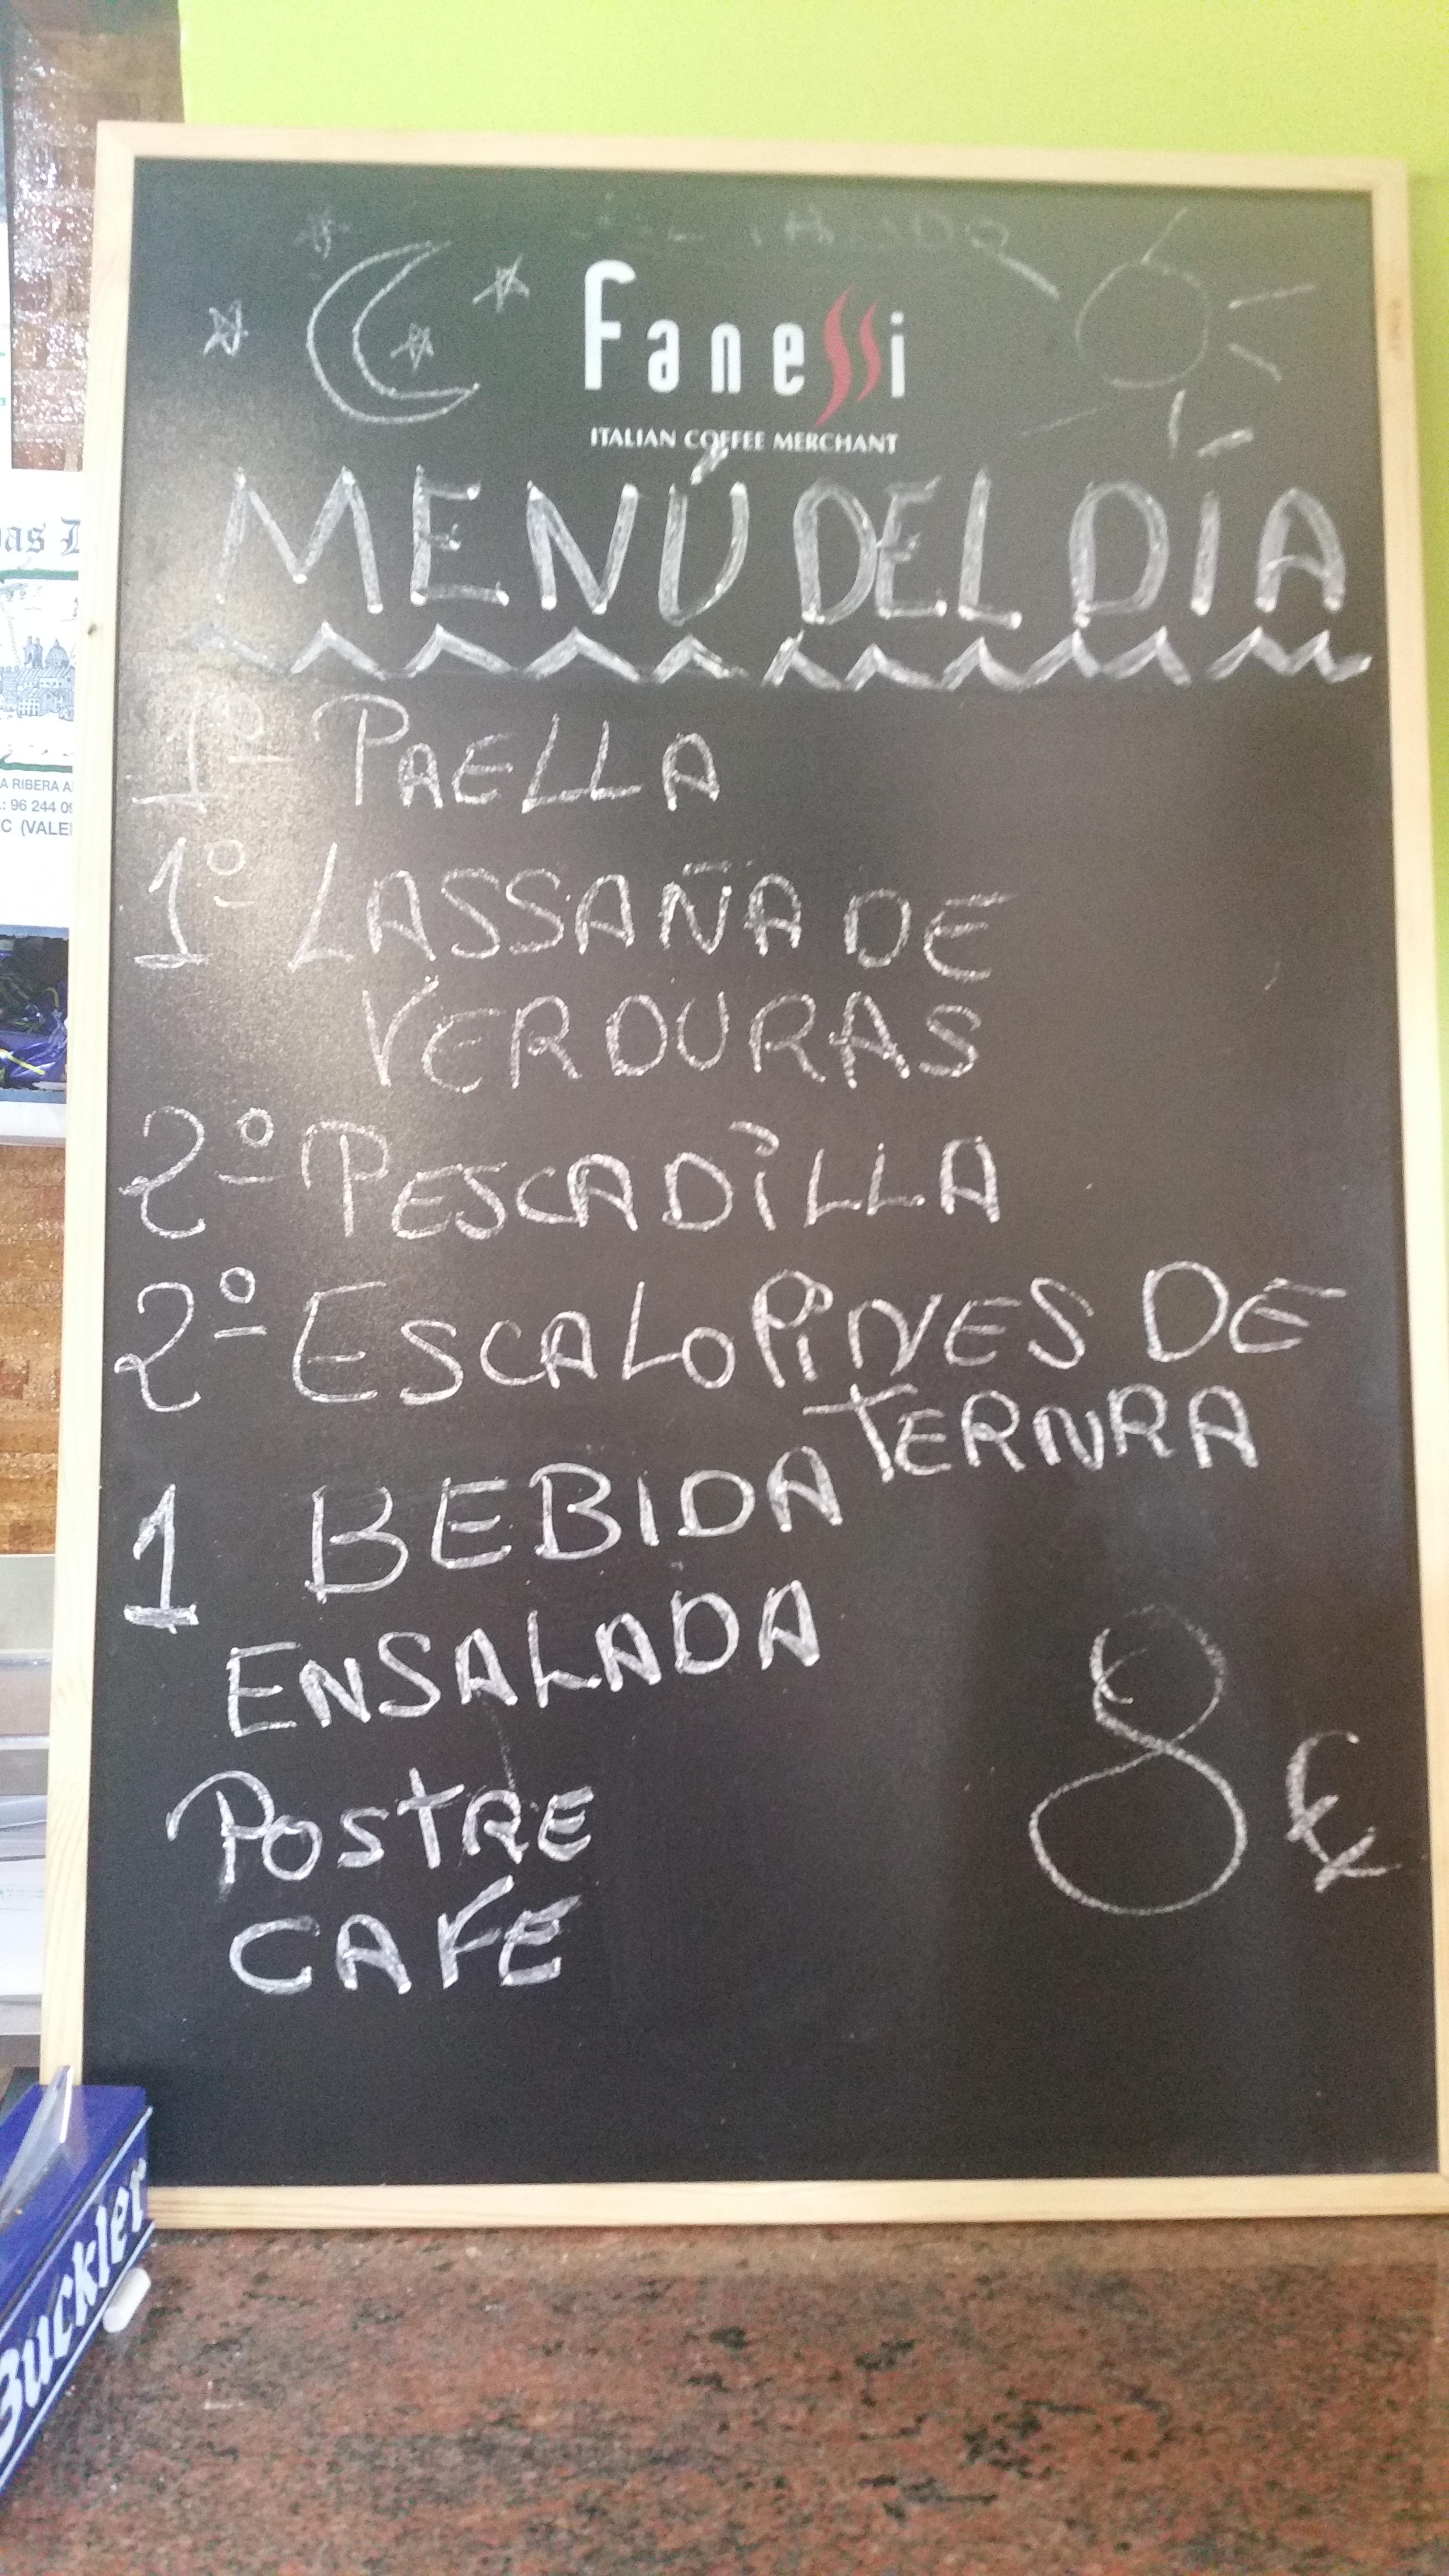 Fanessi
ITALIAN COFFEE MERCHANT
MENÚ DEL DÍA
1º PAELLA
1º LASSAÑA DE
VERDURAS
2º PESCADILLA
2º ESCALOPINES DE
TERNRA
1 BEBIDA
ENSALADA
POSTRE
CAFE
8 €
A RIBERA A
.: 96 244 09
C (VALE
Buckler